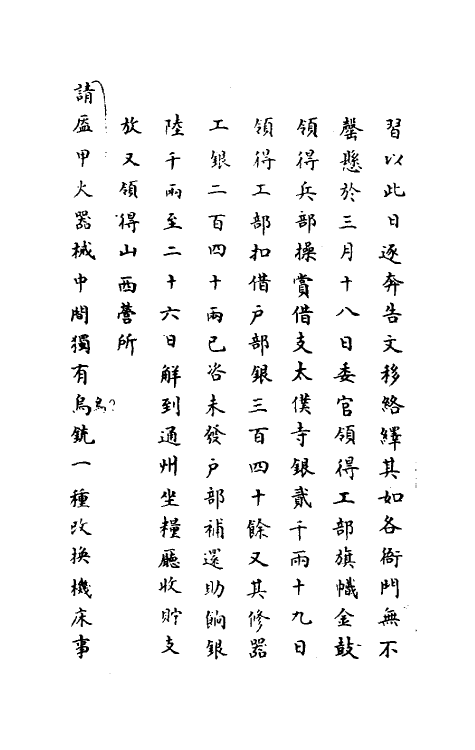 習以此日逐奔告文移絡繹其如各衙門無不
罄懸於三月十八日委官領得工部旗幟金鼓
領得兵部操賞借支太僕寺銀貳千兩十九日
領得工部扣借戶部銀三百四十餘又其修器
工銀二百四十兩已咨未發戶部補還助餉銀
陸千兩至二十六日解到通州坐糧廳收貯支
放又領得山西營所
請盔甲火器械中間獨有烏銃一種改換機床事
鳥?